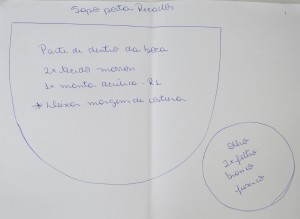 Sapo porta Recados
Parte de dentro da boca
2x tecido marrom
1x manta acrílica - R1
* Deixar margem de costura
Olho
2x feltro
branco
fuxico